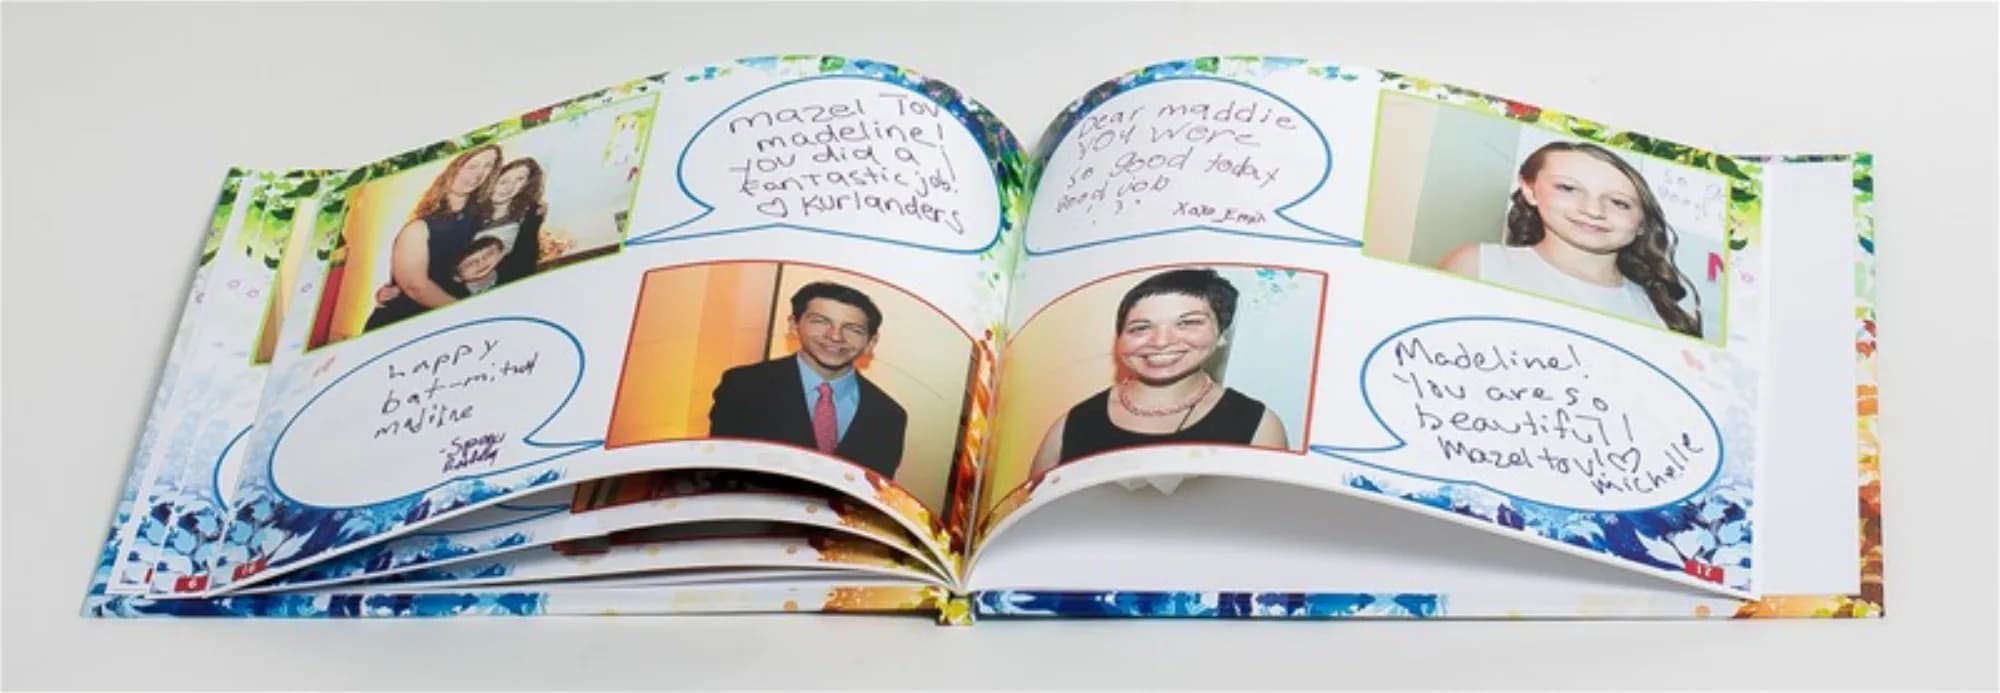 mazel Tov
madeline!
you did a
fantastic job!
♡ Kurlanders
happy
bat-mitvah
madiine
Dear maddie
you were
so good today
good job
:).
xoxo
Madeline!
You are so
beautiful!
Mazel tov!♡
michelle
17